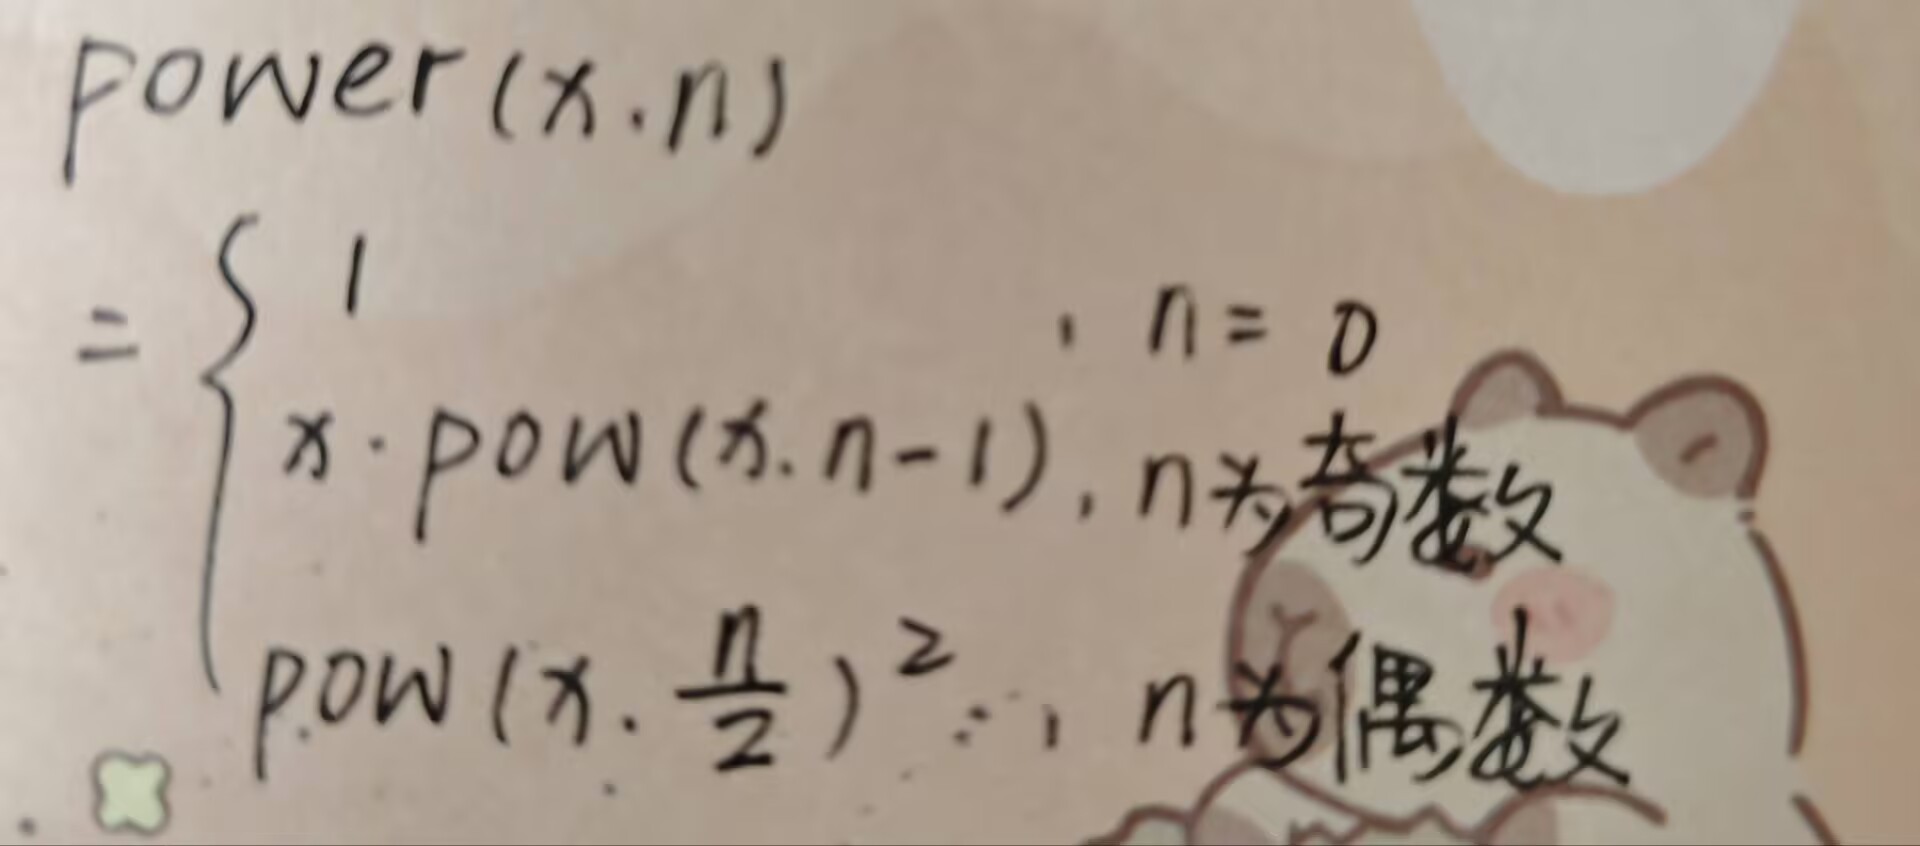 power(x.n)
= { 1 , n = 0
x · pow(x.n-1), n为奇数
pow(x.n/2)² , n为偶数